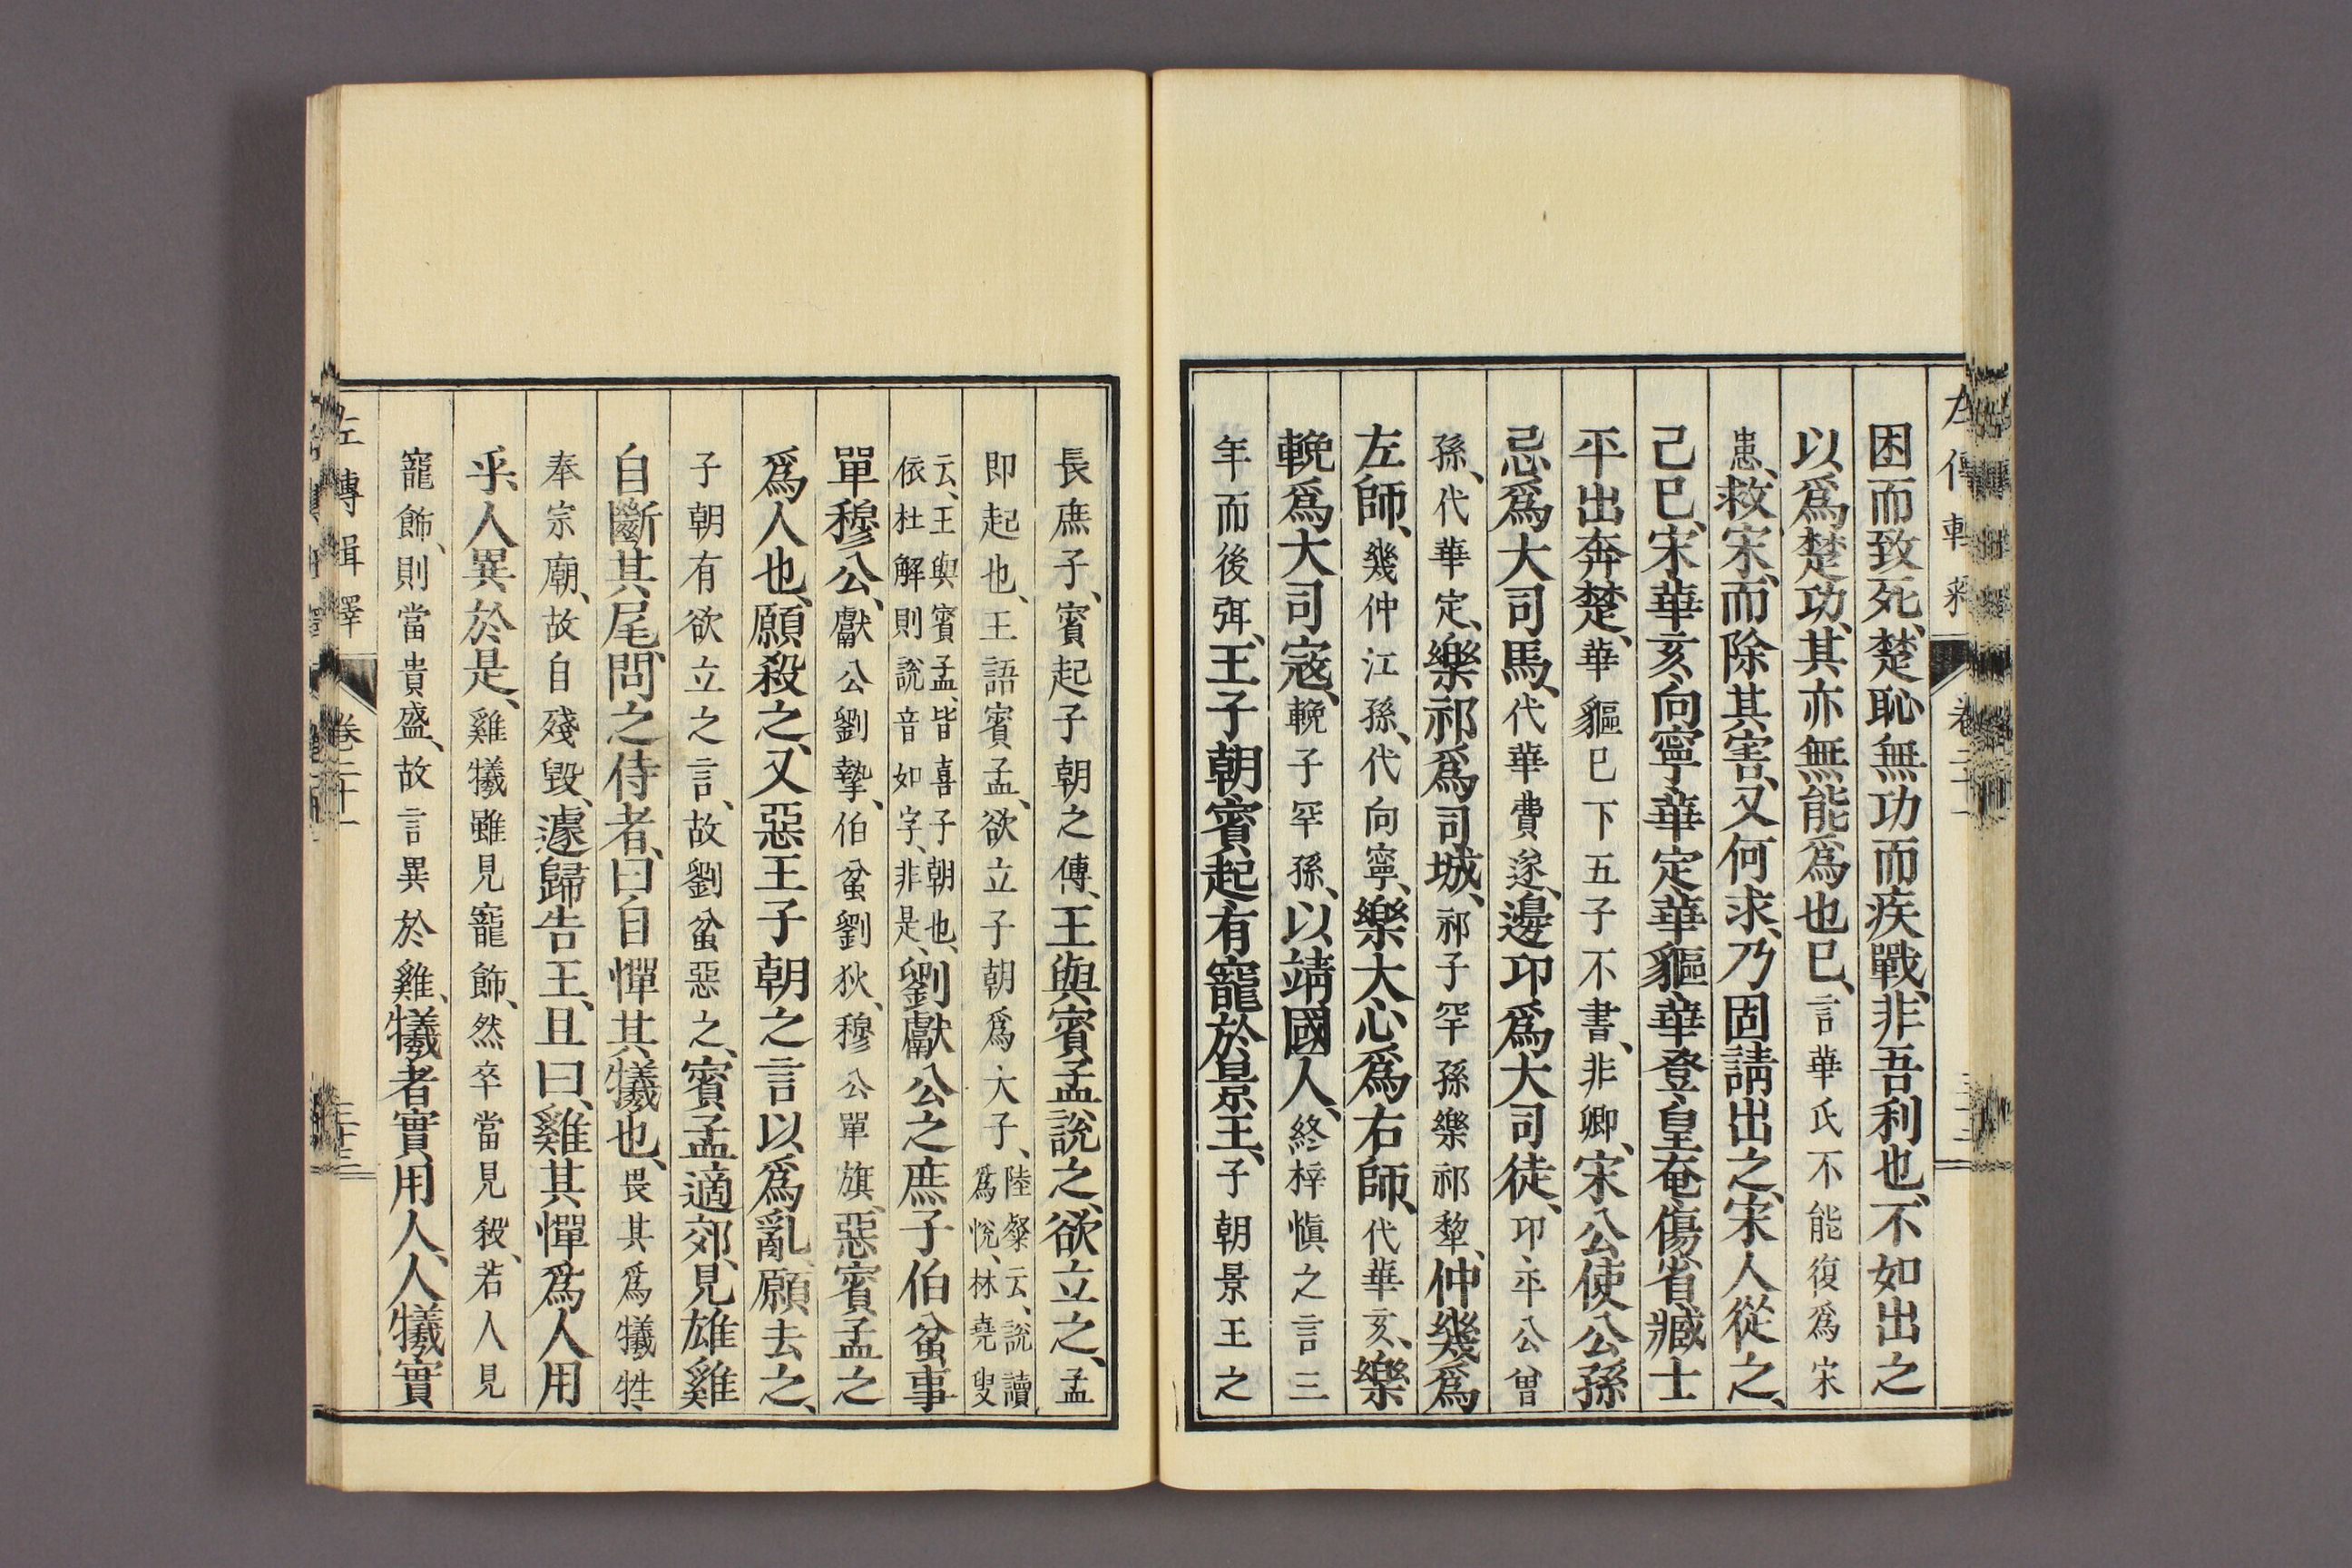 困而致死、楚恥無功而疾戰、非吾利也、不如出之
以爲楚功、其亦無能爲也已、言華氏不能復爲宋
患、救宋、而除其害、又何求、乃固請出之、宋人從之、
己巳、宋華亥、向寧、華定、華貙、華登、皇奄傷、省臧士
平出奔楚、華貙已下五子不書、非卿、宋公使公孫
忌爲大司馬、代華費遂、邊卬爲大司徒、卬、平公曾
孫、代華定、樂祁爲司城、祁子罕孫樂祁犂、仲幾爲
左師、幾仲江孫、代向寧、樂大心爲右師、代華亥、樂
輓爲大司寇、輓子罕孫、以靖國人、終梓愼之言三
年而後弭、王子朝賓起有寵於景王、子朝景王之
長庶子、賓起子朝之傅、王與賓孟說之、欲立之、孟
即起也、王語賓孟、欲立子朝爲大子、陸粲云、說讀爲悅、林堯叟
云、王與賓孟、皆喜子朝也、依杜解則說音如字、非是、劉獻公之庶子伯蚠事
單穆公、獻公劉摯、伯蚠劉狄、穆公單旗、惡賓孟之
爲人也、願殺之、又惡王子朝之言以爲亂、願去之、
子朝有欲立之言、故劉蚠惡之、賓孟適郊、見雄雞
自斷其尾、問之侍者、曰自憚其犧也、畏其爲犧牲、
奉宗廟、故自殘毀、遽歸告王、且曰、雞其憚爲人用
乎、人異於是、雞犧雖見寵飾、然卒當見殺、若人見
寵飾、則當貴盛、故言異於雞、犧者實用人、人犧實
左傳輯釋 卷二十一 二十三